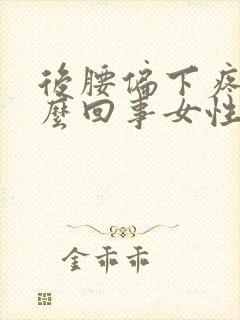 後腰偏下疼
麼回事女性
金乖乖